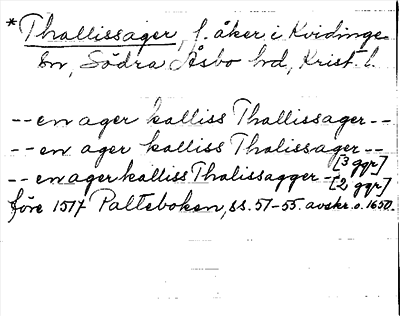 *Thallissager, f. åker i Kvidinge
sn, Södra Åsbo hd, Krist. l.
-- en ager kalliss Thallissager --
-- en ager kalliss Thalissager --
[3 ggr]
-- en ager kalliss Thalissagger --
[2 ggr]
före 1517 Palteboken, ss. 57-55. avskr. o. 1650.